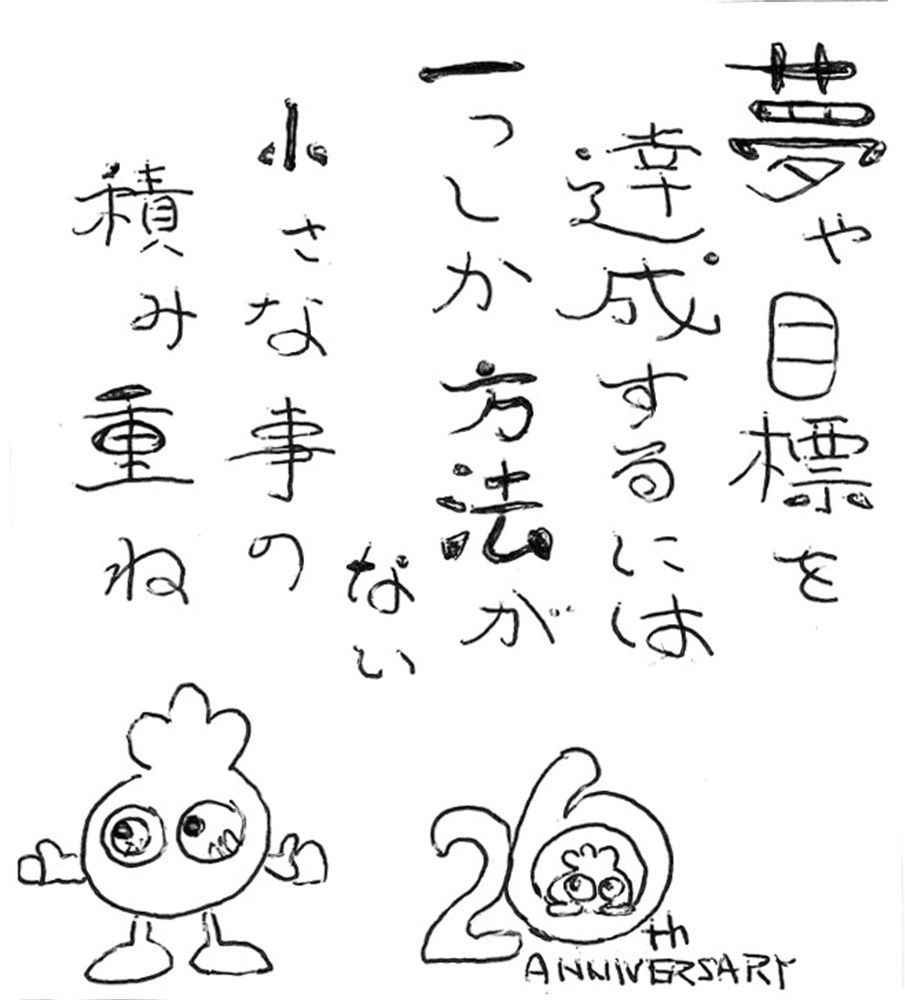 夢や目標を
達成するには
一つしか方法が
ない
小さな事の
積み重ね
26th
ANNIVERSARY